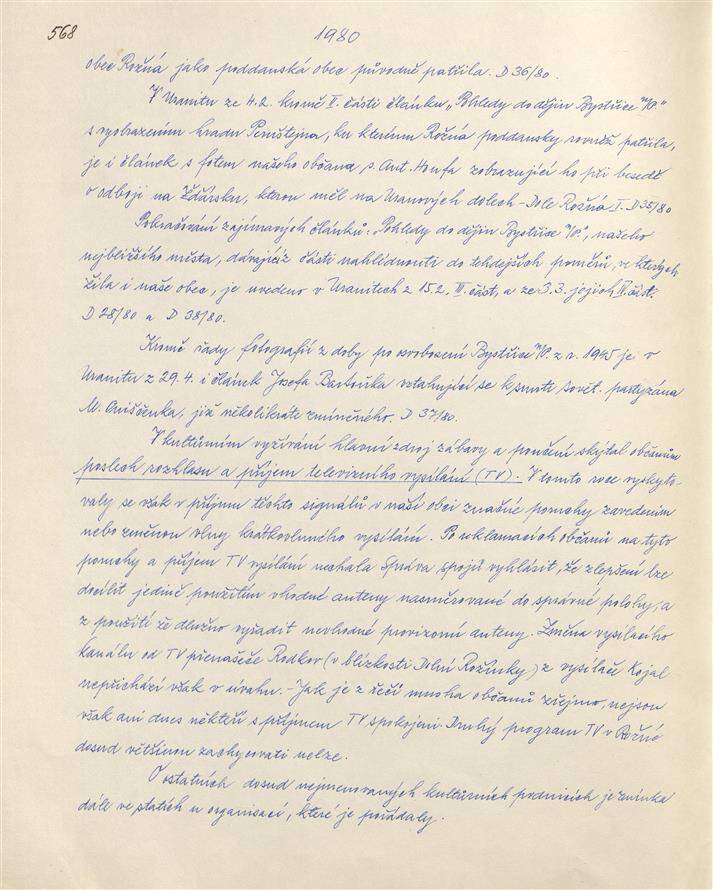 568
1980
obec Rožná jako poddanská obec původně patřila. D 36/80.
V Uranitu ze 4.2. kromě II. části článku „Pohledy do dějin Bystřice n/P."
s vyobrazením hradu Pernštejna, ku kterému Rožná poddansky rovněž patřila,
je i článek s fotem našeho občana s. Ant. Honfa zobrazující ho při besedě
o odboji na Žďársku, kterou měl na Uranových dolech - Dole Rožná I. D 35/80
Pokračování zajímavých článků: Pohledy do dějin Bystřice n/P.", našeho
nejbližšího města, dávající z části nahlédnouti do tehdejších poměrů, ve kterých
žila i naše obec, je uvedeno v Uranitech z 15.2. III. část, a ze 3.3. jejich IV. část.
D 28/80 a D 38/80.
Kromě řady fotografií z doby po osvobození Bystřice n/P. z r. 1945 je v
Uranitu z 29.4. i článek Josefa Bartouška vztahující se k smrti sovět. partyzána
M. Oniščenka, již několikráte zmíněného. D 37/80.
V kulturním vyžívání hlavní zdroj zábavy a poučení skýtal občanům
poslech rozhlasu a příjem televizního vysílání (TV). V tomto roce vyskyto-
valy se však v příjmu těchto signálů v naší obci značné poruchy zavedením
nebo změnou vlny krátkovlnného vysílání. Po reklamacích občanů na tyto
poruchy a příjem TV vysílání nechala Správa spojů vyhlásit, že zlepšení lze
docílit jedině použitím vhodné anteny nasměrované do správné polohy, a
z použití že dlužno vyřadit nevhodné provizorní anteny. Změna vysílacího
kanálu od TV přenašeše Rodkov (v blízkosti Dolní Rožínky) z vysílače Kojal
nepřichází však v úvahu. - Jak je z řečí mnoha občanů zřejmo, nejsou
však ani dnes někteří s příjmem TV spokojeni. Druhý program TV v Rožné
dosud většinou zachycovati nelze.
O ostatních dosud nejmenovaných kulturních podnicích je zmínka
dále ve statích u organisací, které je pořádaly.